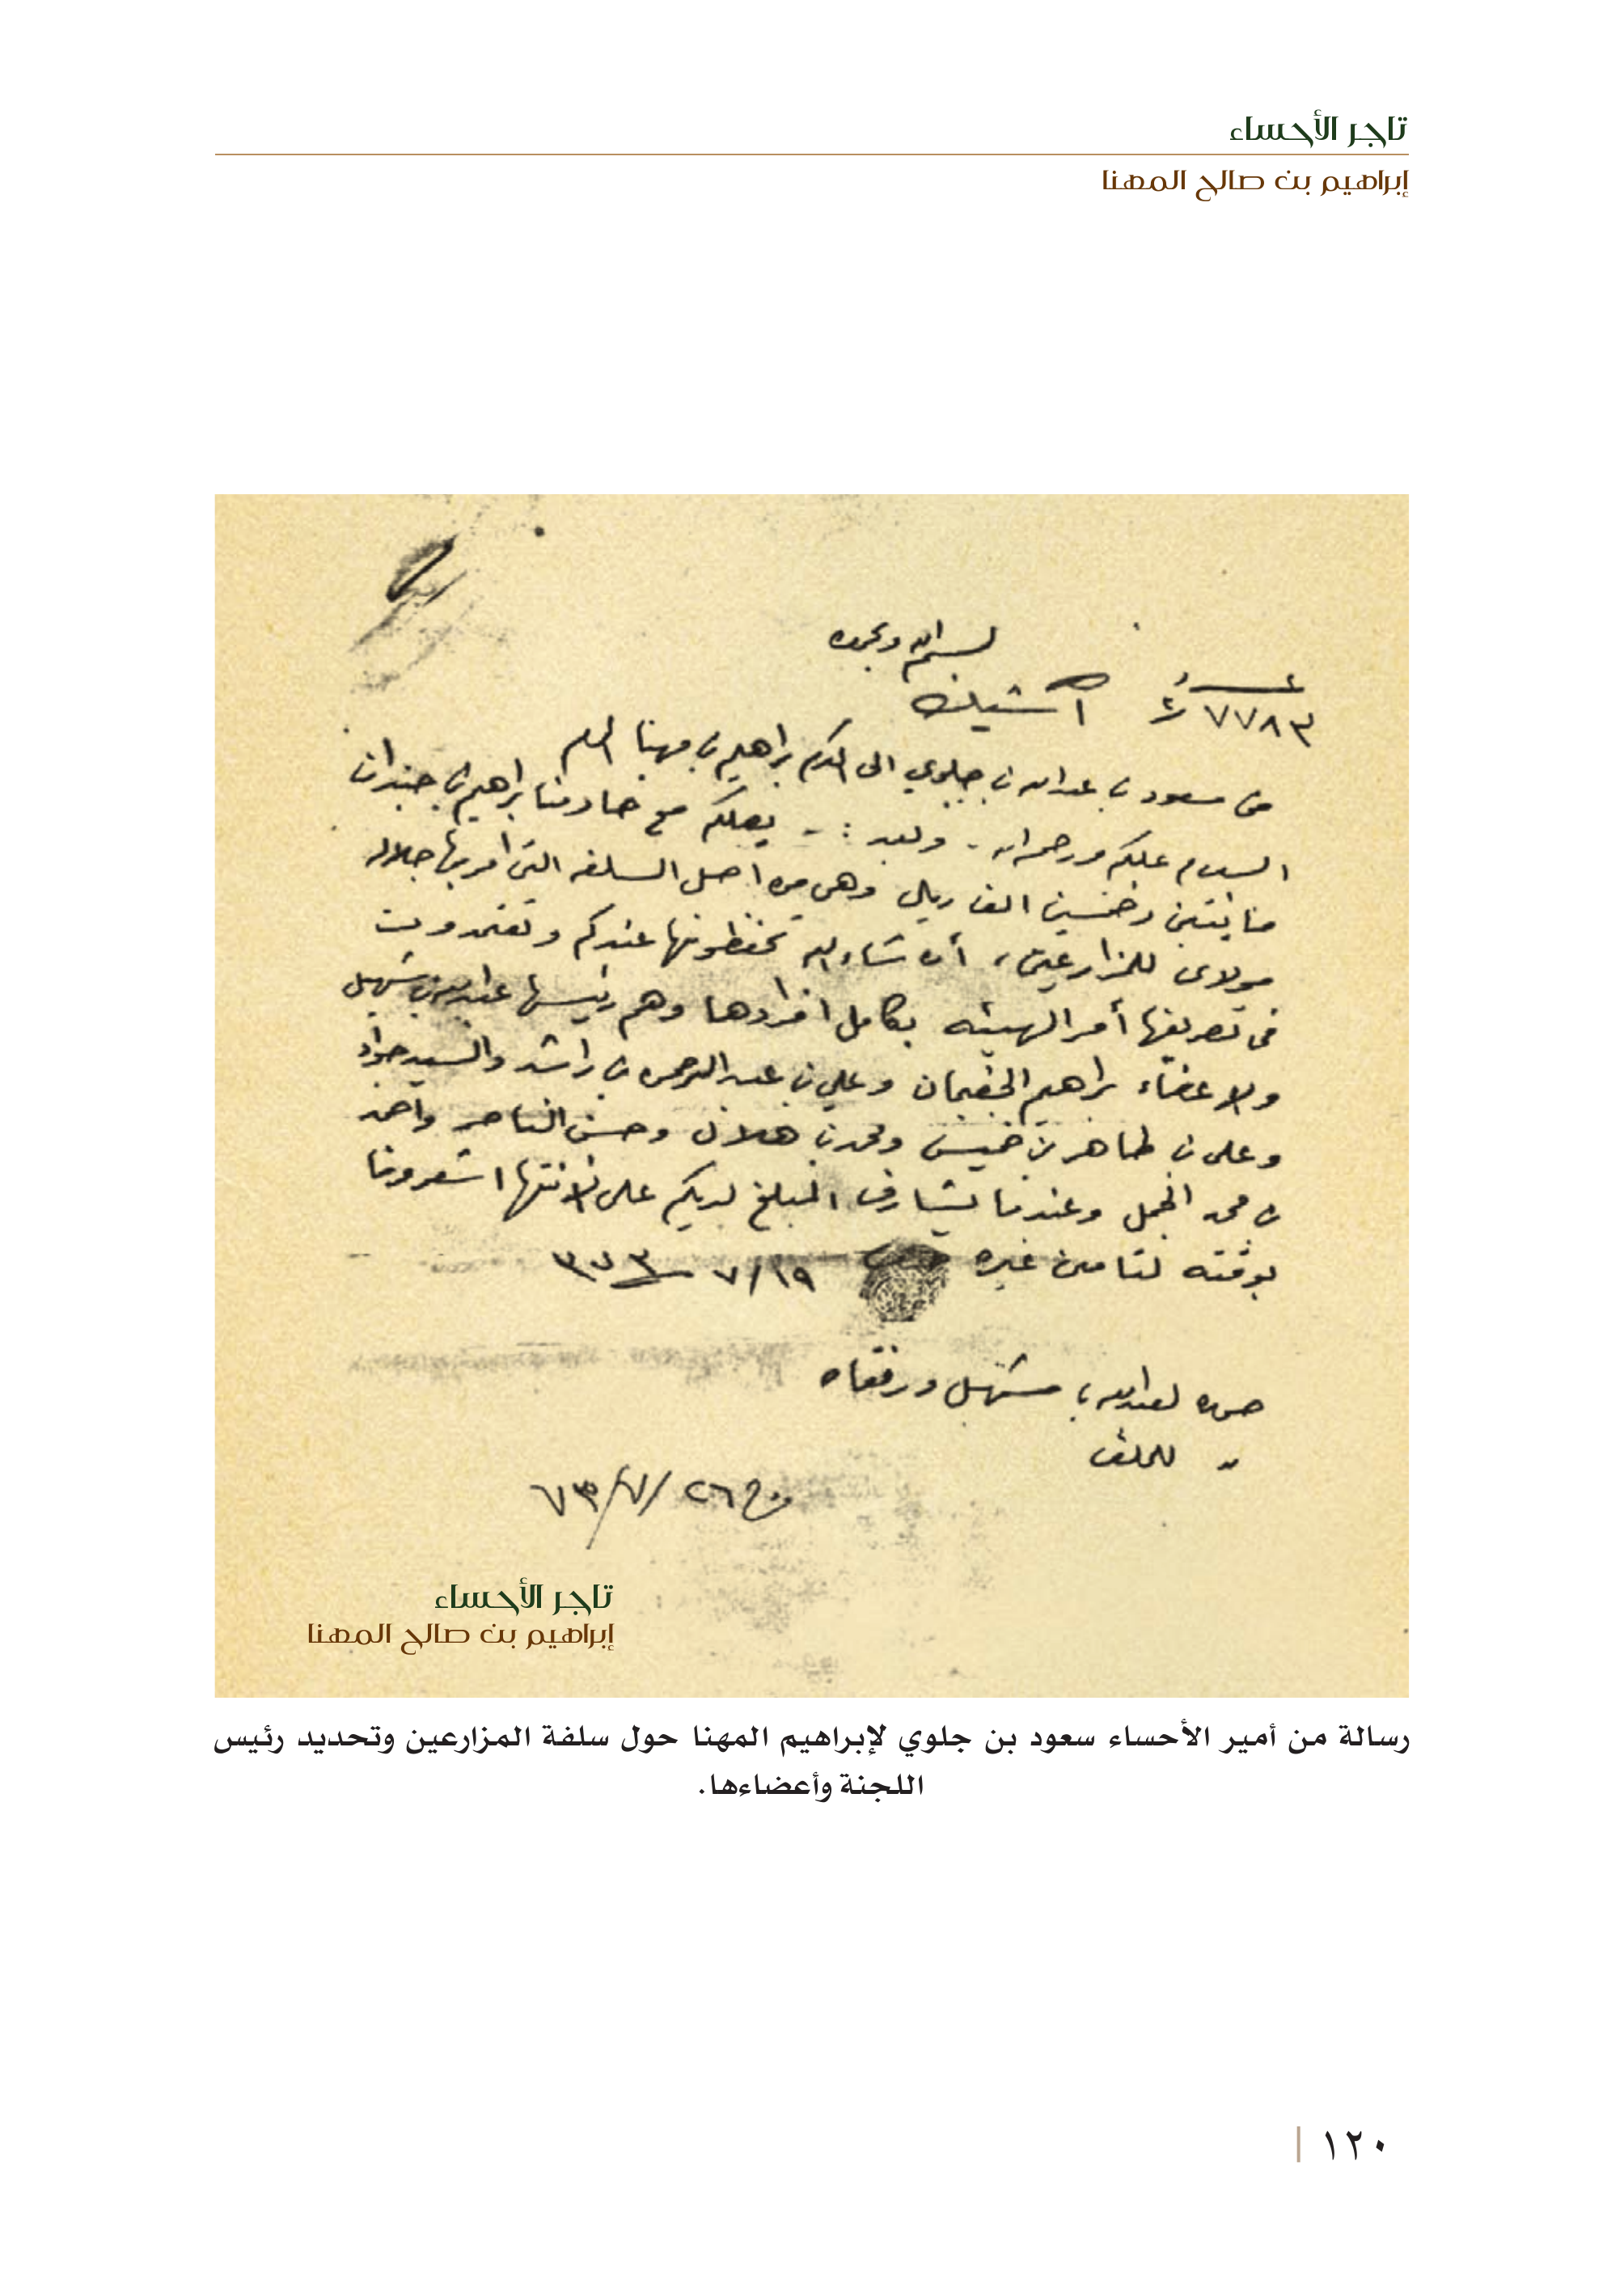 تاجر الأحساء
إبراهيم بن صالح المهنا
بسم الله وبحمده
عدد
٧٧٨٣
من سعود بن عبدالله بن جلوي الى المكرم براهيم بن مهنا سلمه
السلام عليكم ورحمة الله - وبعد :- يصلكم مع خادمنا براهيم بن جندان
مائتين وخمسين الف ريال وهي من اصل السلفه التي امر بها جلالة
مولاي للمزارعين، أن شاء الله تحفظونها عندكم وتعتمدون
في تصريفها أمر الهيئه بكامل افرادها وهم رئيسها عبدالله بن
ولاعضاء براهيم الجغيمان وعلي بن عبدالرحمن بن راشد والسيد جواد
وعلي بن طاهر بن خميس ومحمد بن هلال وحسن الناصر واحمد
بن محمد الجمل وعندما يشارف المبلغ لديكم على لانتها اشعرونا
بوقته لتامين غيره ١٩/٧ ٣٧٣
صوره لعبدالله بن ورفقاه
" للملف
٢٦/٧/٧٣
تاجر الأحساء
إبراهيم بن صالح المهنا
رسالة من أمير الأحساء سعود بن جلوي لإبراهيم المهنا حول سلفة المزارعين وتحديد رئيس
اللجنة وأعضاءها.
١٢٠